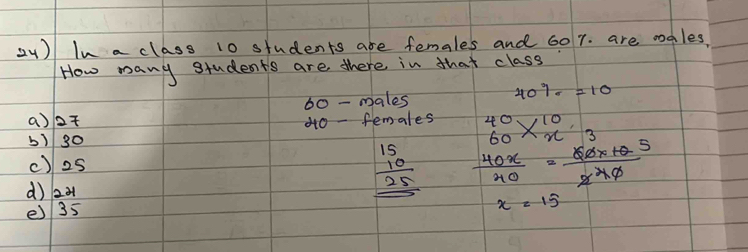 24) In a class 10 students are females and 60%. are males.
How many students are there in that class
a) 27
b) 30
c) 25
d) 24
e) 35
60 - males
40 - females
15
10
25
40%. = 10
40 10
60 x
40x = 60x10 3 5
40 2 40
x = 15